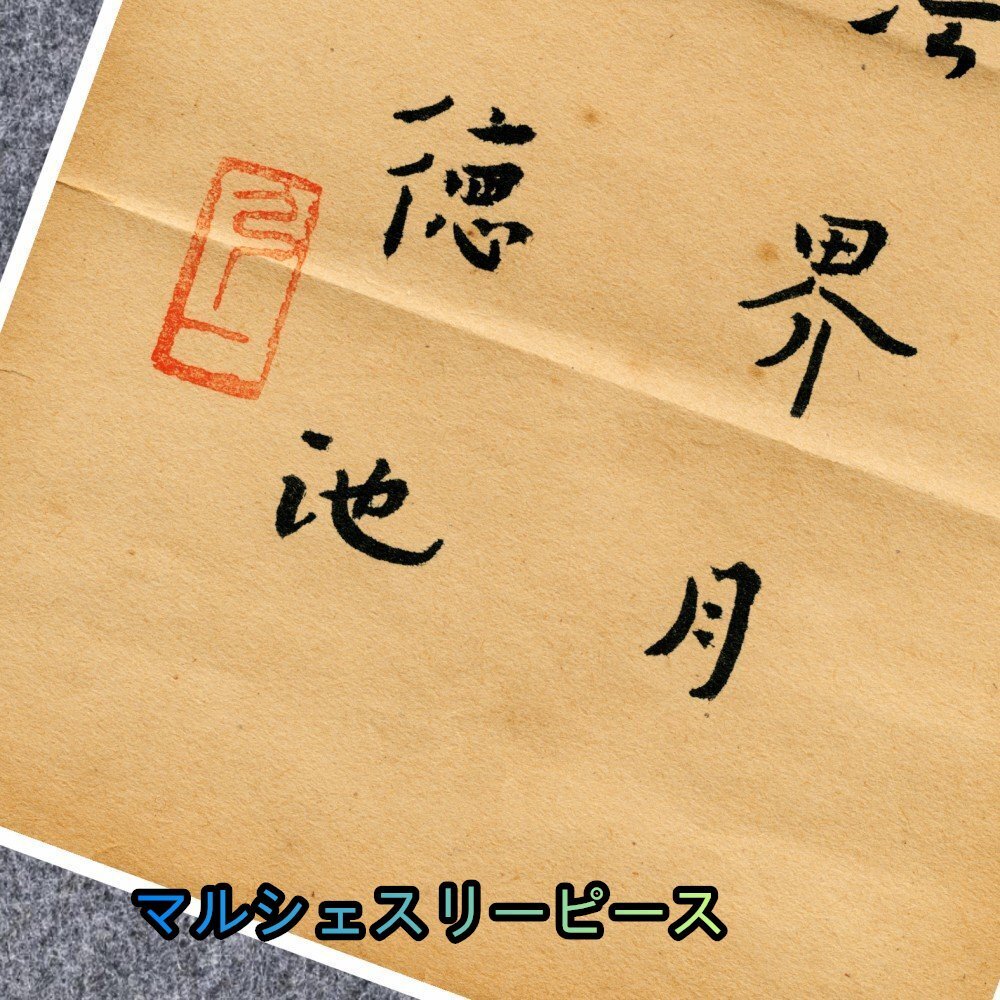 界月
德池
マルシェスリーピース